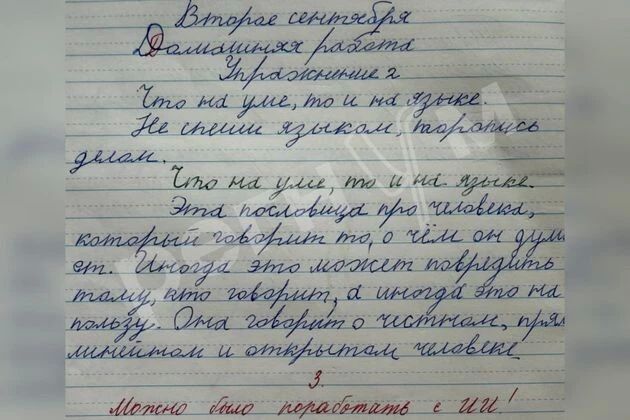 Второе сентября
Домашняя работа
Упражнение 2
Что на уме, то и на языке.
Не спеши языком, торопись
делом.
Что на уме, то и на языке.
Эта пословица про человека,
который говорит то, о чём он дума
ет. Иногда это может повредить
тому, кто говорит, а иногда это на
пользу. Она говорит о честном, прям
линейном и открытом человеке
3.
Можно было поработать с ИИ!